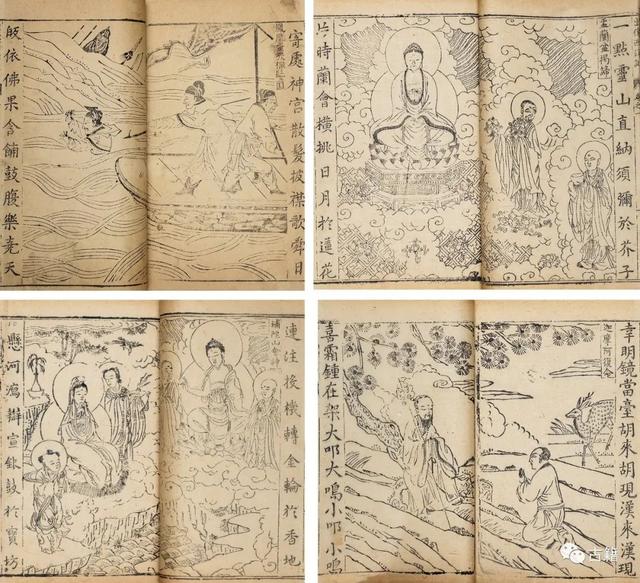 寄處神宮散髮披襟歌舜日
皈依佛果含餔鼓腹樂堯天
一點靈山直納須彌於芥子
盂蘭盆揭諦
片時蘭會橫挑日月於蓮花
機轉金輪於香地
懸河瀉辯宣鉦鼓於寶坊
幸明鏡當臺胡來胡現漢來漢現
喜霜鍾在架大叩大鳴小叩小鳴
古籍